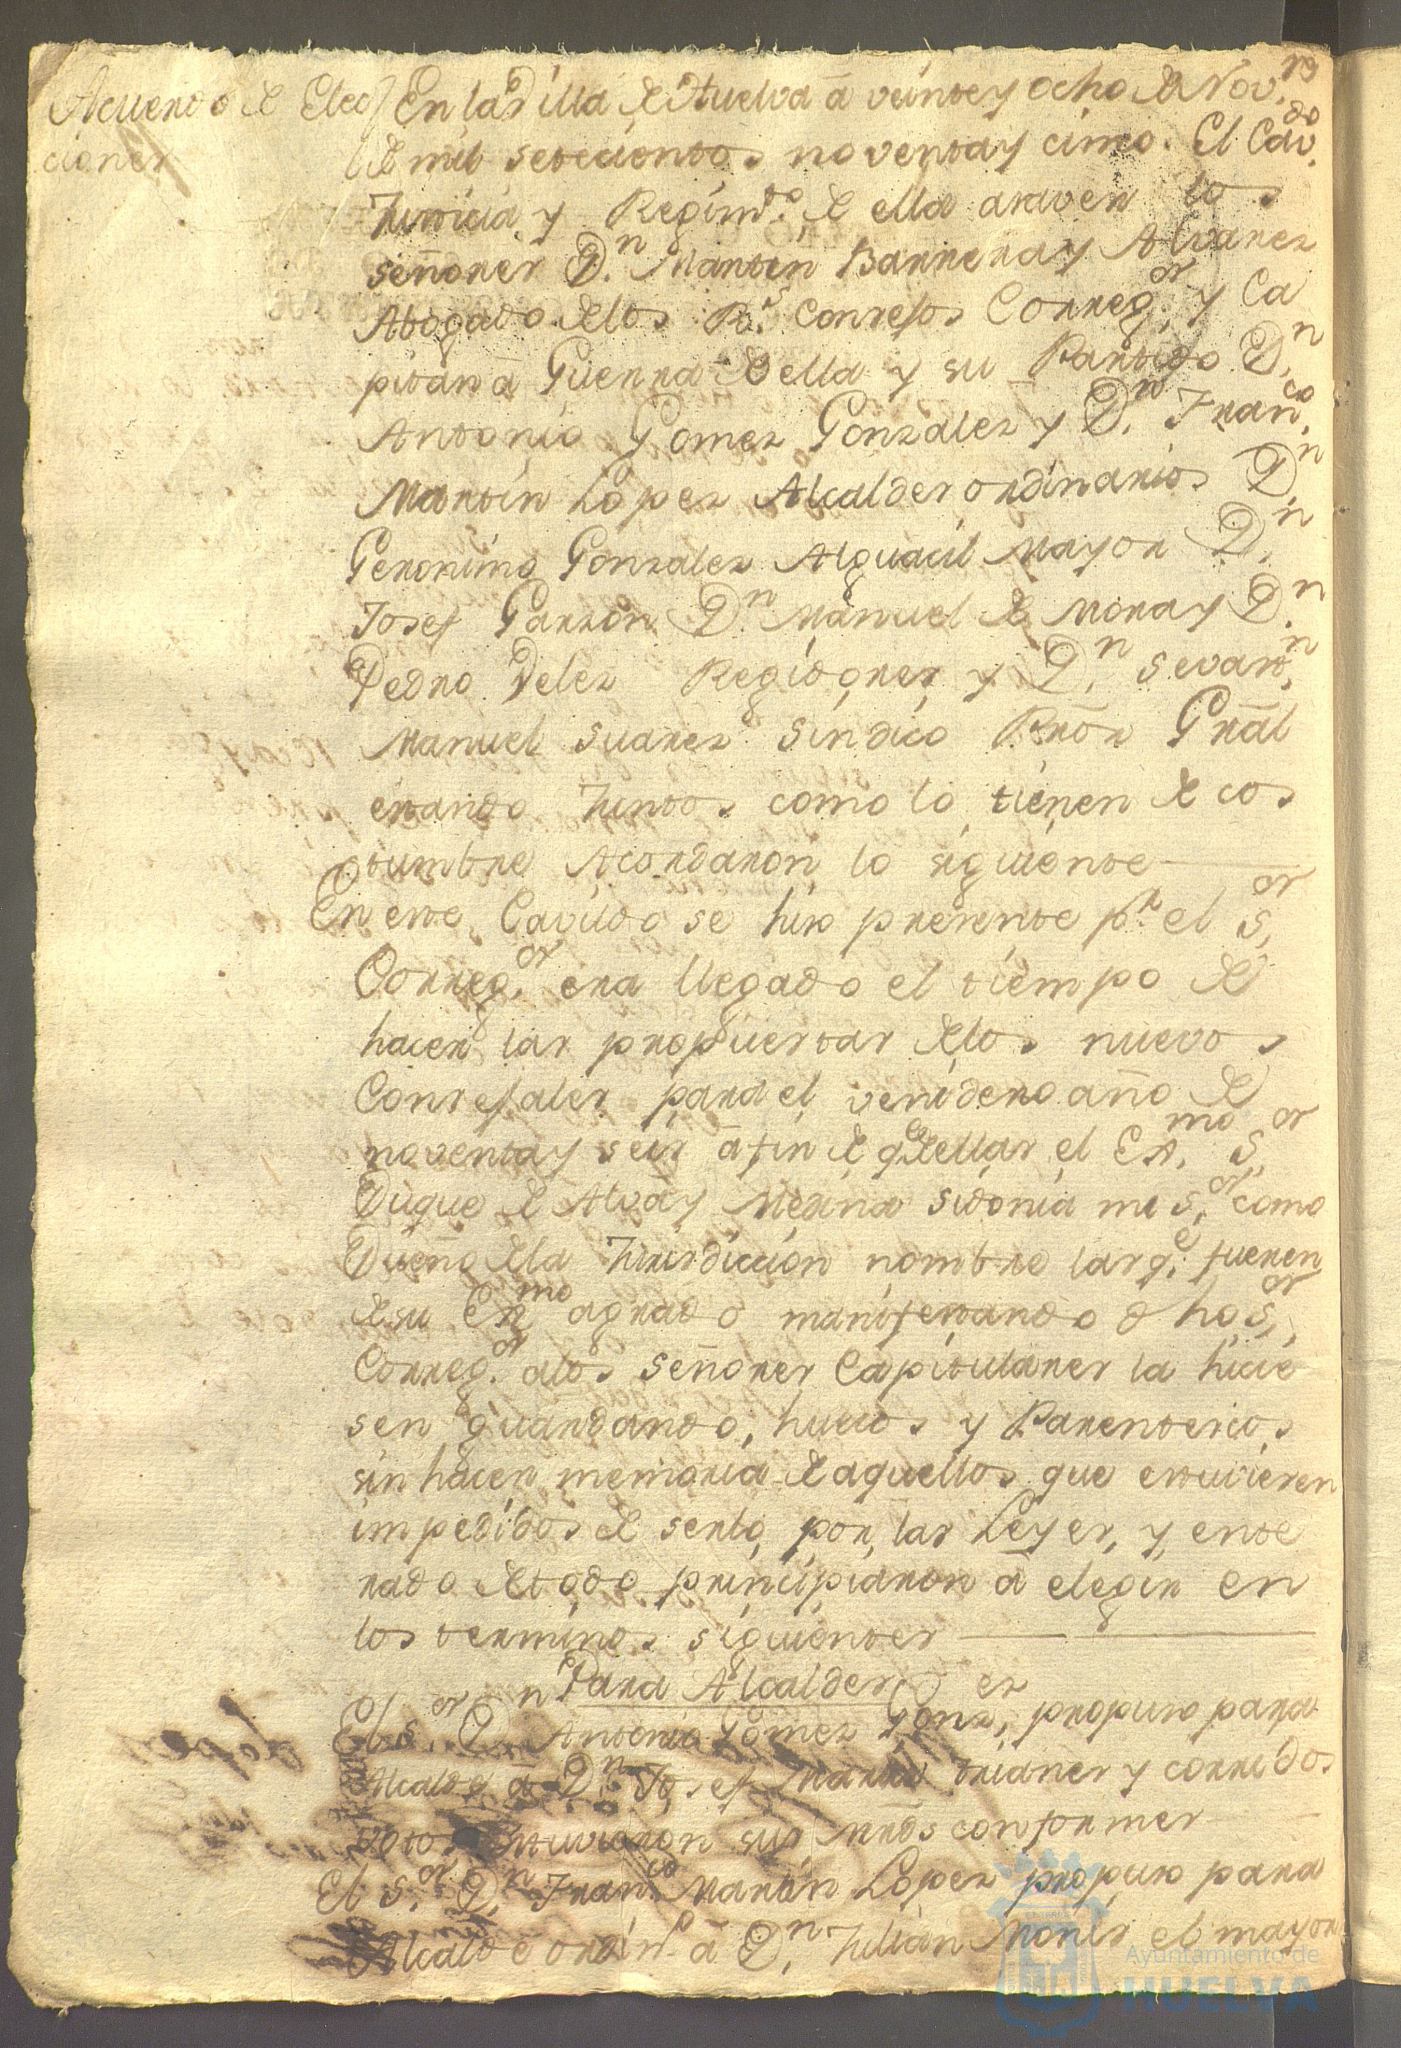 Acuerdo de Elec
ciones
En la Villa de Huelva ā veinte y ocho de Nov.re
de mil setecientos noventa y cinco. El Cav.do
Justicia y Regim.to de ella asaver los
señores D.n Martin Barrera y Alvarez
Abogado de los R.s Consejos Correg.or y Ca
pitan ā Guerra de ella y su Partido D.n
Antonio Gomez Gonzalez y D.n Fran.co
Martin Lopez Alcaldes ordinarios D.n
Geronimo Gonzalez Alguacil Mayor D.n
Josef Garzon D.n Manuel de Mora y D.n
Pedro Velez Regidores y D.n Sevast.n
Manuel Suarez Sindico Prōr Grāl
estando Juntos como lo tienen de cos
tumbre Acordaron lo siguiente
En este Cavildo se hizo presente p.r el S.or
Correg.or era llegado el tiempo de
hacer las propuestas de los nuevos
Consejales para el venidero año de
noventa y seis ā fin de q.e de ellas el Ex.mo S.or
Duque de Alva y Medina Sidonia mi S.or como
Dueño de la Jurisdiccion nombre las q.e fueren
de su Ex.mo agrado manifestando dho S.or
Correg.or a los señores Capitulares la hicie
sen guardando, huecos y Parentescos
sin hacer memoria de aquellos que estuvieren
impedidos de serlo, por, las Leyes, y ente
rado de todo principiaron ā elegir en
los terminos siguientes
Para Alcaldes
El S.or D.n Antonio Gomez Gonz.ez propuso para
Alcalde ā D.n Josef Maria trianes y corridos
votos estuvieron sus mrds conformes
El S.or D.n Fran.co Martin Lopez propuso para
Alcalde ordin.o ā D.n Julian Monis el mayor
Ayuntamiento de
HUELVA